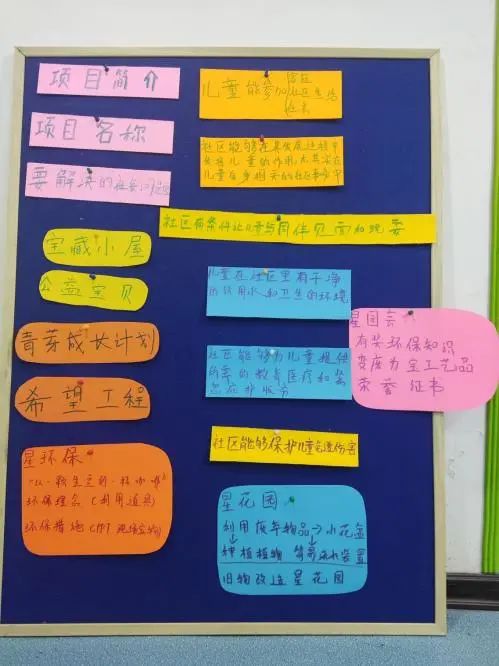 项目简介
项目名称
要解决的社会问题
宝藏小屋
公益宝贝
青芽成长计划
希望工程
星环保
环保理念(利用道具)
环保措施
儿童能参加社区生活
社区能够在其发展过程中
发挥儿童的作用,尤其是在
儿童自身相关的社区事务中
社区有条件让儿童与同伴见面和玩耍
儿童在社区里有干净
的饮用水和卫生的环境
社区能够为儿童提供
所需的教育医疗和紧
急庇护服务
社区能够保护儿童免遭伤害
星花园
利用废弃物品→小花盆
种植植物 简易滴水装置
旧物改造星花园
星园会
有奖环保知识
变废为宝工艺品
荣誉证书